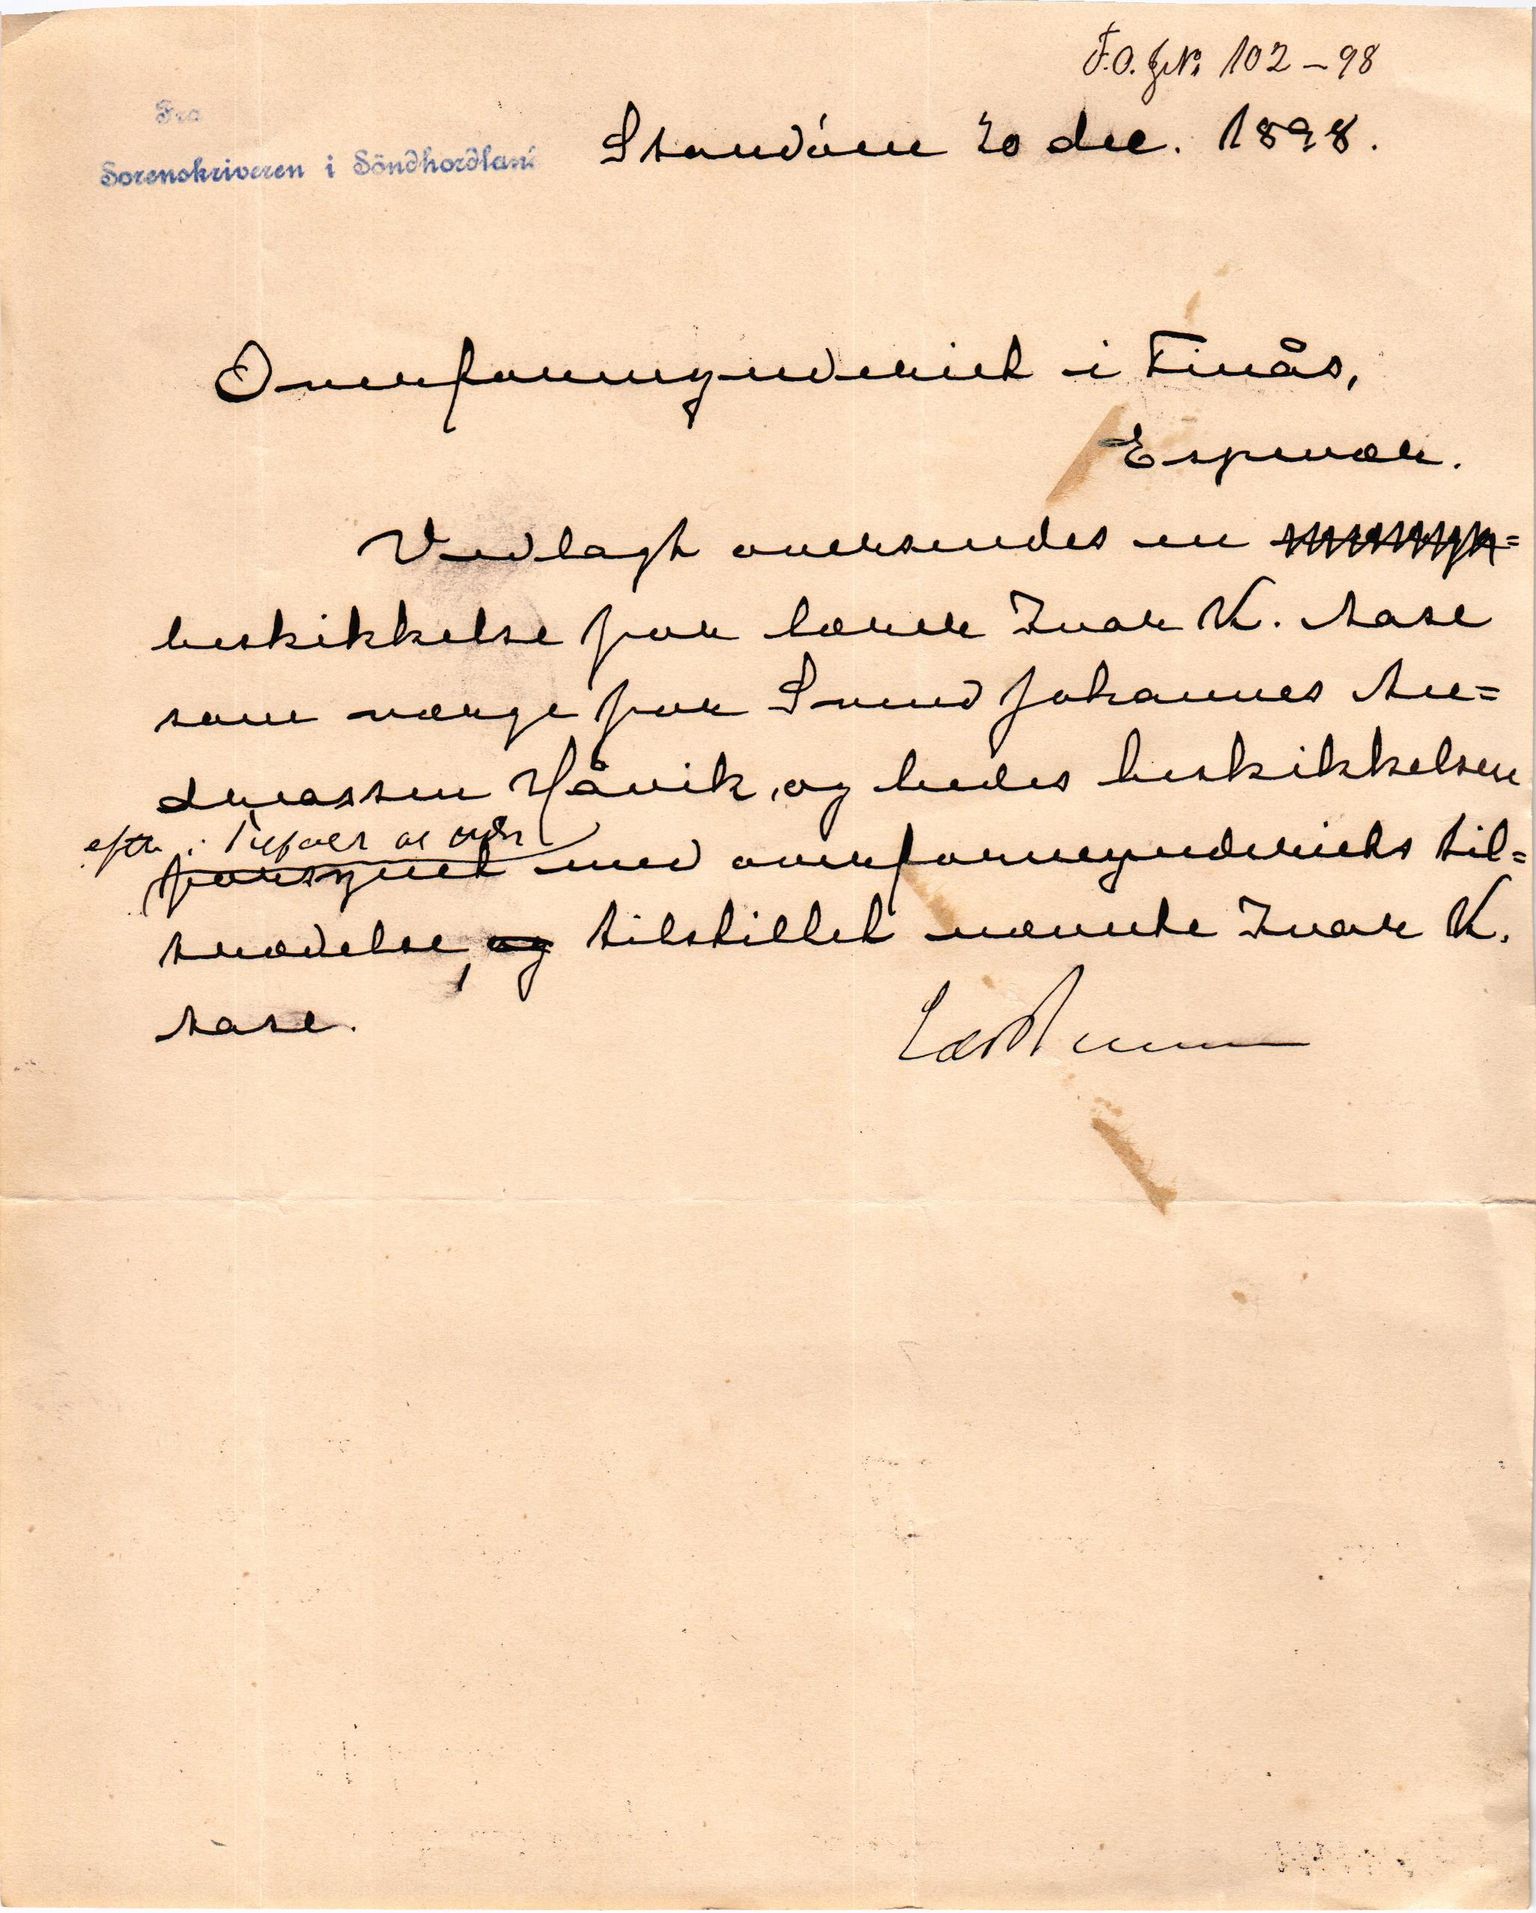 F.O. J.Nr. 102 – 98
Fra
Sorenskriveren i Söndhordland
Stendören 20 dec. 1898.
Overformynderiet i Finås,
Espevær.
Vedlagt oversendes en
beskikkelse for lærer Ivar K. Aase
som værge for Svend Johannes An=
dreassen Håvik, og bedes beskikkelsen
efter i Tilfælde at være
forsynet med overformynderiets til=
trædelse, og tilstillet nævnte Ivar K.
Aase.